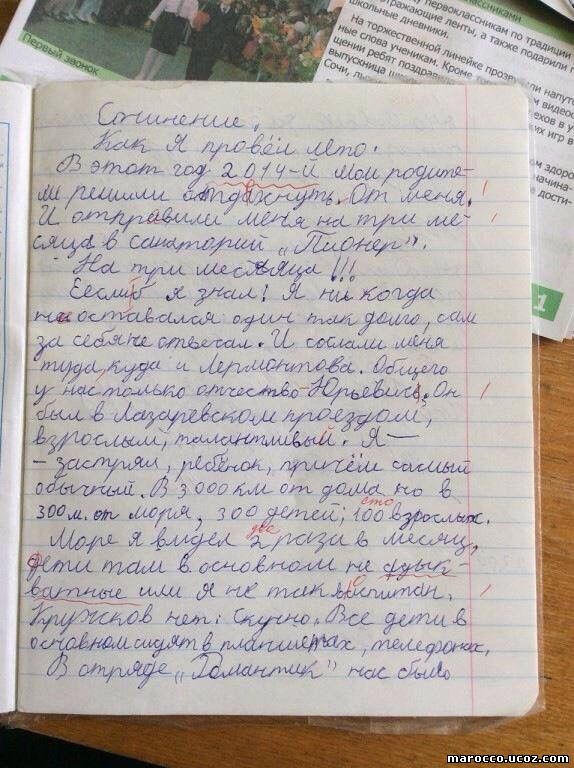 Первый звонок
первоклассниками
первоклассникам по традиции
отражающие ленты, а также подарили
школьные дневники.
На торжественной линейке прозвучали напут
ные слова ученикам. Кроме
щении ребят поздрави
выпускница
Сочи,
1
Сочинение.
Как Я провёл лето.
В этот год 2014-й мои родите-
ли решили отдахнуть. От меня.
И отправили меня на три ме-
сяца в санаторий „Пионер".
На три месяца!!!
Еслиб я знал! Я ни когда
не оставался один так долго, сам
за себя не отвечал. И сослали меня
туда, куда и Лермонтова. Общего
у нас только отчество – Юрьевич. Он
был в Лазаревском проездом,
взрослый, талантливый. Я —
– застрял, ребёнок, причём самый
обычный. В 3000 км от дома, но в
300 м. от моря, 300 детей, 100 взрослых.
сто
Море я видел 2 раза в месяц,
два
дети там в основном не адык-
ватные или я не так воспитан.
Кружков нет: Скучно. Все дети в
основном сидят в планшетах, телефонах.
В отряде „Романтик" нас было
marocco.ucoz.com